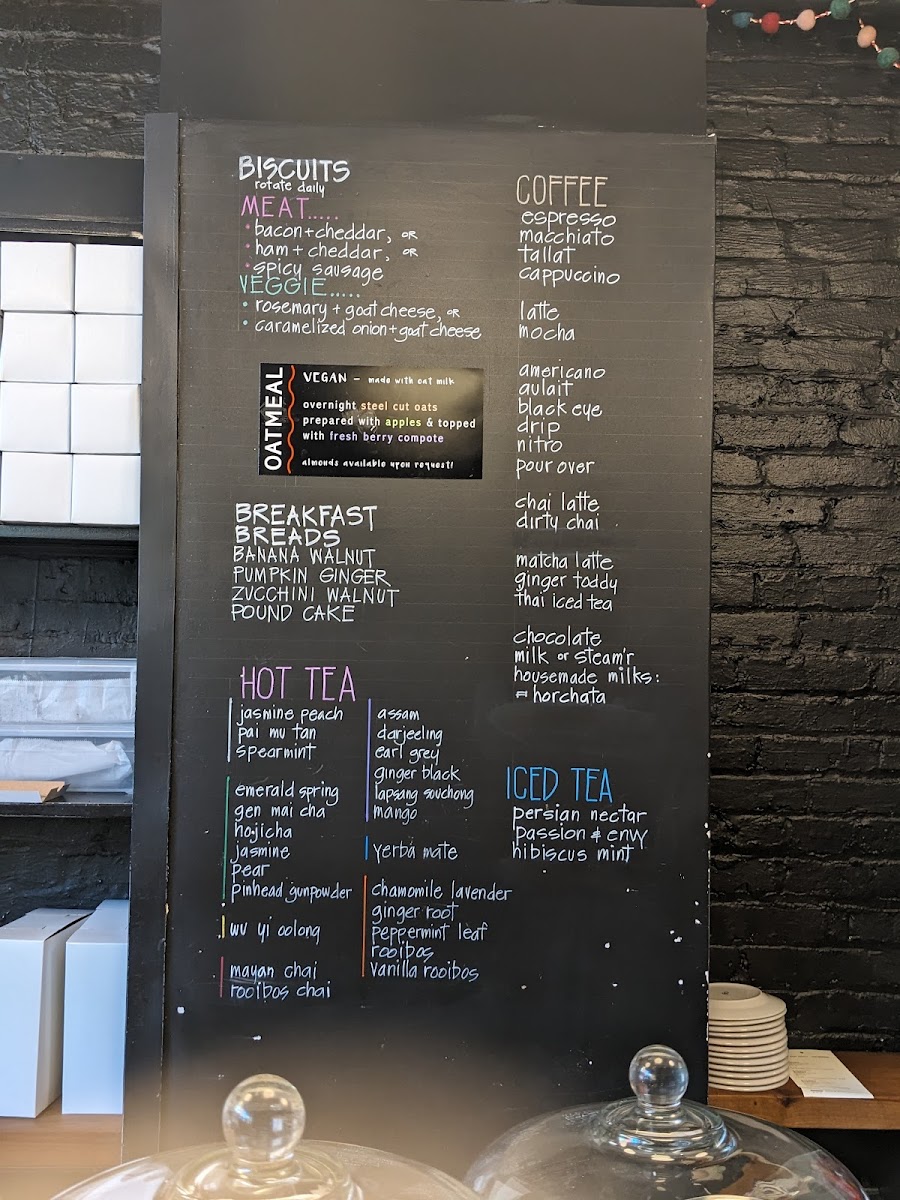 BISCUITS
rotate daily
MEAT.....
• bacon+cheddar, OR
• ham + cheddar, OR
• spicy sausage
VEGGIE.....
• rosemary + goat cheese, OR
• caramelized onion+goat cheese
OATMEAL
VEGAN - made with oat milk
overnight steel cut oats
prepared with apples & topped
with fresh berry compote
almonds available upon request!
BREAKFAST
BREADS
BANANA WALNUT
PUMPKIN GINGER
ZUCCHINI WALNUT
POUND CAKE
HOT TEA
jasmine peach
pai mu tan
spearmint
emerald spring
gen mai cha
hojicha
jasmine
pear
pinhead gunpowder
wu yi oolong
mayan chai
rooibos chai
assam
darjeeling
earl grey
ginger black
lapsang souchong
mango
yerba mate
chamomile lavender
ginger root
peppermint leaf
rooibos
vanilla rooibos
COFFEE
espresso
macchiato
tallat
cappuccino
latte
mocha
americano
aulait
black eye
drip
nitro
pour over
chai latte
dirty chai
matcha latte
ginger toddy
thai iced tea
chocolate
milk or steam'r
housemade milks:
horchata
ICED TEA
persian nectar
passion & envy
hibiscus mint